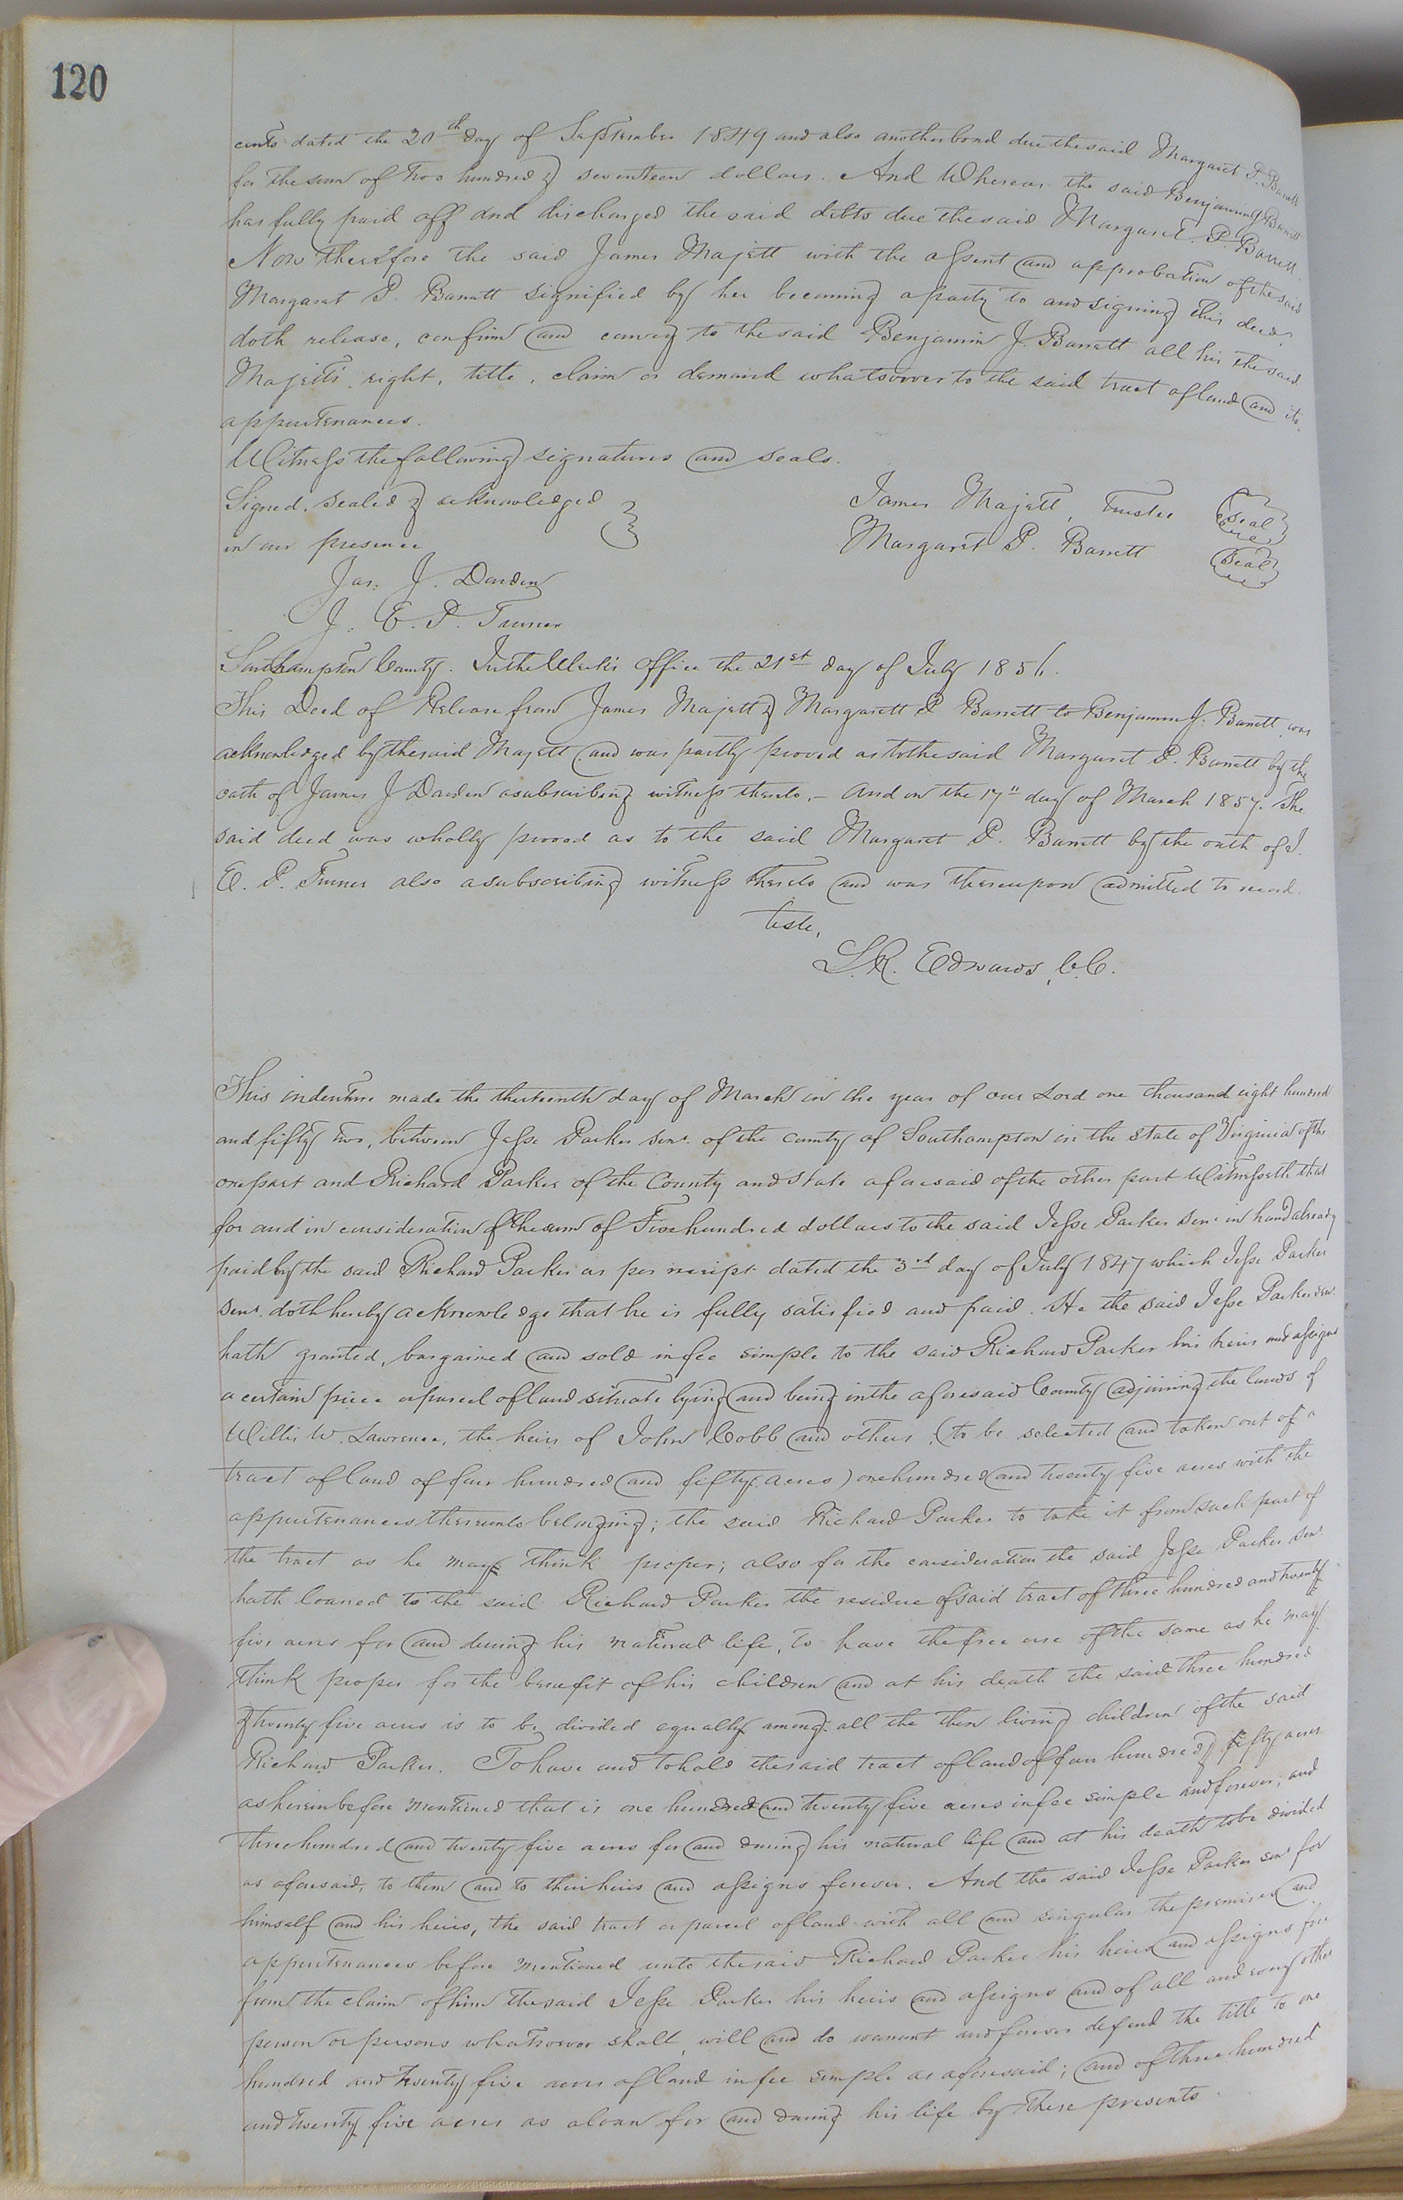 120
cents dated the 20th day of September 1849 and also another bond due the said Margaret P. Barrett
for the sum of two hundred & seventeen dollars. And Whereas the said Benjamin J Barrett
has fully paid off and discharged the said debts due the said Margaret P. Barrett.
Now therefore the said James Majett with the assent and approbation of the said
Margaret P. Barrett signified by her becoming a party to and signing this deed,
doth release, confirm and convey to the said Benjamin J. Barrett all his the said
Majetts right, title, claim or demand whatsoever to the said tract of land and its
appurtenances.
Witness the following signatures and seals.
Signed, sealed & acknowledged
in our presence
James Majett, Trustee Seal
Margaret P. Barrett Seal
Jas. J. Darden
J. E. P. Turner
Southampton County. In the Clerk's office the 21st day of July 1856.
This Deed of Release from James Majett & Margarett P Barrett to Benjamin J. Barrett was
acknowledged by the said Majett and was partly proved as to the said Margaret P. Barrett by the
oath of James J Darden a subscribing witness thereto. – And on the 17" day of March 1857. The
said deed was wholly proved as to the said Margaret P. Barrett by the oath of J.
E. P. Turner also a subscribing witness thereto and was thereupon admitted to record.
Teste,
L. R. Edwards, C. C.
This indenture made the thirteenth day of March in the year of our Lord one thousand eight hundred
and fifty two, between Jesse Parker Senr. of the county of Southampton in the State of Virginia of the
one part and Richard Parker of the County and State aforesaid of the other part Witnesseth that
for and in consideration of the sum of Five hundred dollars to the said Jesse Parker Senr in hand already
paid by the said Richard Parker as per receipt dated the 3rd day of July 1847 which Jesse Parker
Senr. doth hereby acknowledge that he is fully satisfied and paid. He the said Jesse Parker Senr.
hath granted, bargained and sold in fee simple to the said Richard Parker his heirs and assigns
a certain piece or parcel of land situate lying and being in the aforesaid County adjoining the lands of
Willis W. Lawrence, the heirs of John Cobb and others, (to be selected and taken out of a
tract of land of four hundred and fifty acres) one hundred and twenty five acres with the
appurtenances thereunto belonging; the said Richard Parker to take it from such part of
the tract as he may think proper; also for the consideration the said Jesse Parker Senr.
hath loaned to the said Richard Parker the residue of said tract of three hundred and twenty
five acres for and during his natural life, to have the free use of the same as he may
think proper for the benefit of his children and at his death the said three hundred
& twenty five acres is to be divided equally among all the then living children of the said
Richard Parker. To have and to hold the said tract of land of four hundred & fifty acres
as hereinbefore mentioned that is one hundred and twenty five acres in fee simple and forever; and
three hundred and twenty five acres for and during his natural life and at his death to be divided
as aforesaid, to them and to their heirs and assigns forever. And the said Jesse Parker Senr for
himself and his heirs, the said tract or parcel of land with all and singular the premises and
appurtenances before mentioned unto the said Richard Parker his heirs and assigns free
from the claim of him the said Jesse Parker his heirs and assigns and of all and every other
person or persons whatsoever shall, will and do warrant and forever defend the title to one
hundred and twenty five acres of land in fee simple as aforesaid; and of three hundred
and twenty five acres as a loan for and during his life by these presents.